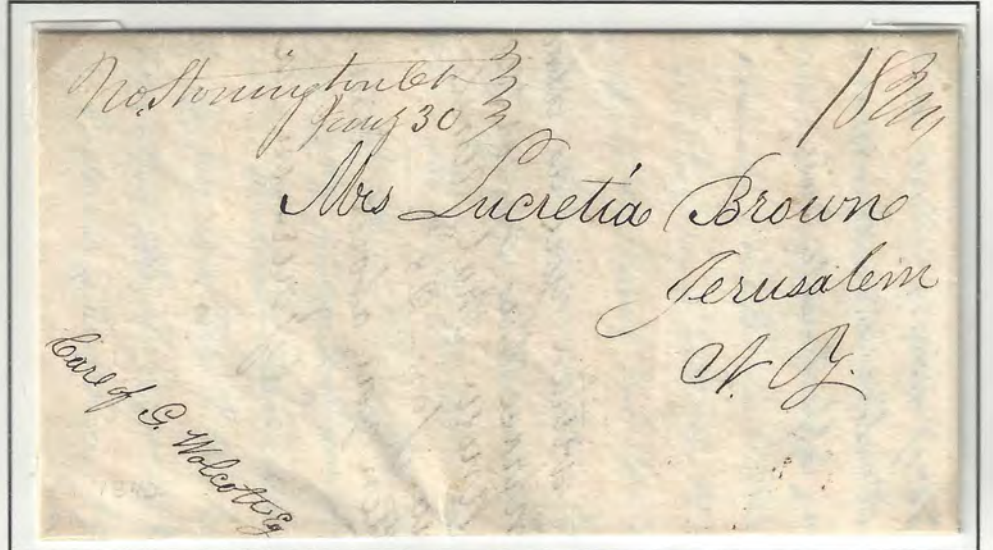 No. Stonington Ct
Jany 30
18 3/4
Mrs Lucretia Brown
Jerusalem
N. Y.
Care of G. Wolcott Esq
1842